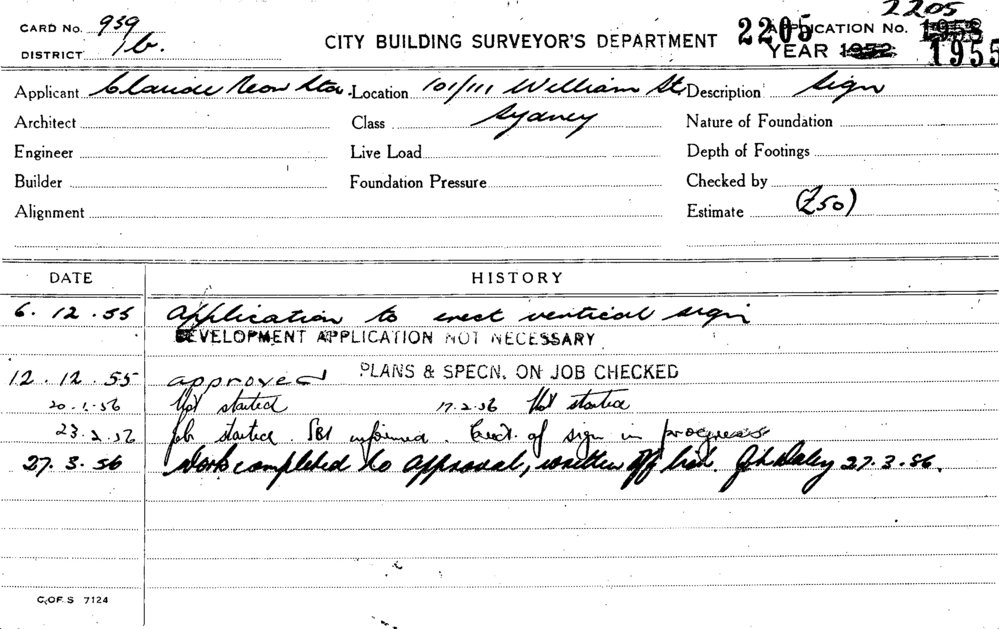 2205
CARD No. 939 CITY BUILDING SURVEYOR'S DEPARTMENT 2205 APPLICATION No.
DISTRICT 1b. YEAR 1952 1955
Applicant Claude Neon Location 101/111 William St Description Sign
Architect Class Sydney Nature of Foundation
Engineer Live Load Depth of Footings
Builder Foundation Pressure Checked by
Alignment Estimate (£50)
DATE HISTORY
6.12.55 Application to erect vertical sign
DEVELOPMENT APPLICATION NOT NECESSARY
12.12.55 approved PLANS & SPECN. ON JOB CHECKED
20.1.56 Not started 17.2.56 Not started
23.2.56 Job started. informed. Erect. of sign in progress
27.3.56 Work completed to approval, written off 27.3.56.
C. OF S 7124